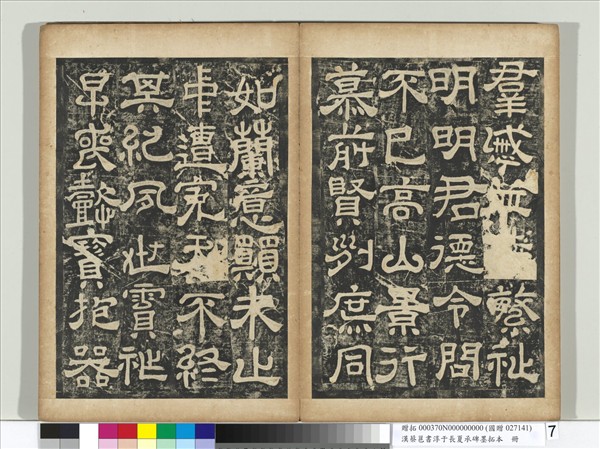 羣慼並繁祉
明明君德令問
不已高山景行
慕前賢列庶同
如蘭意願未止
中遭冤夭不終
其紀夙世霣祚
早喪懿寶抱器
贈拓 000370N000000000 (國贈 027141)
漢蔡邕書淳于長夏承碑墨拓本 冊
7